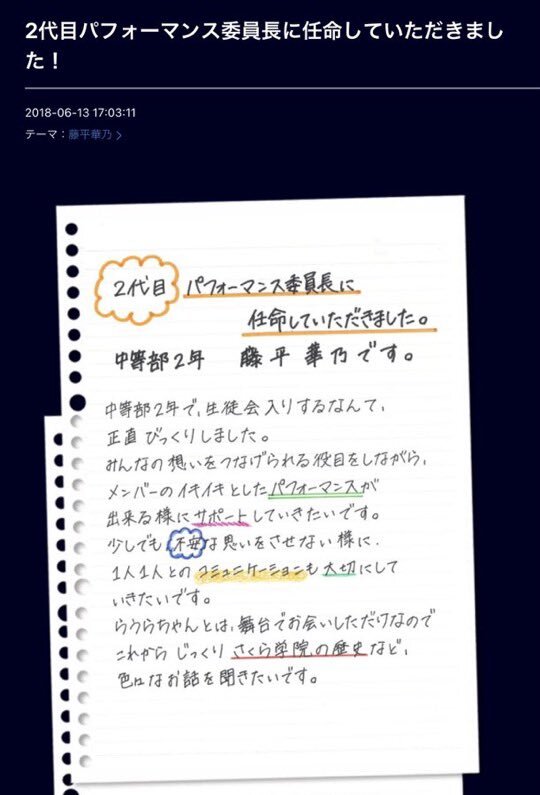 2代目パフォーマンス委員長に任命していただきまし
た！
2018-06-13 17:03:11
テーマ：藤平華乃 >
2代目 パフォーマンス委員長に
任命していただきました。
中等部2年 藤平華乃です。
中等部2年で、生徒会入りするなんて、
正直びっくりしました。
みんなの想いをつなげられる役目をしながら、
メンバーのイキイキとしたパフォーマンスが
出来る様にサポートしていきたいです。
少しでも不安な思いをさせない様に、
1人1人とのコミュニケーションも大切にして
いきたいです。
らうらちゃんとは、舞台でお会いしただけなので
これからじっくりさくら学院の歴史など、
色々なお話を聞きたいです。